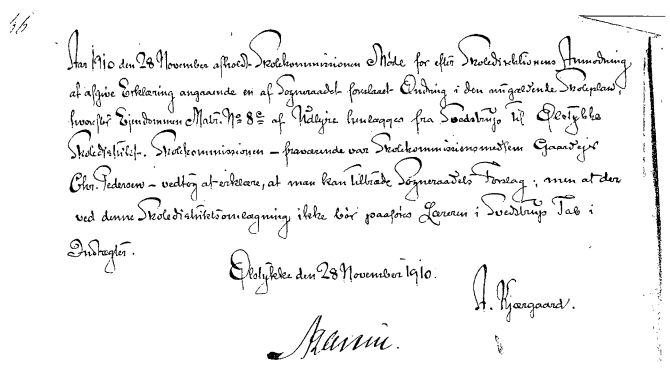 56
Aar 1910 den 28 November afholdt Skolekommissionen Møde for efter Skoledirektionens Anmodning
at afgive Erklæring angaaende en af Sogneraadet foreslaaet Ændring i den nugældende Skoleplan,
hvorefter Ejendommen Matr. No 8e af Udlejre henlægges fra Svedstrup til Ølstykke
Skoledistrikt. Skolekommissionen – fraværende var Skolekommissionsmedlem Gaardejer
Chr. Pedersen – vedtog at erklære, at man kan tiltræde Sogneraadets Forslag; men at der
ved denne Skoledistriktsomlægning ikke bør paaføres Læreren i Svedstrup Tab i
Indtægter.
Ølstykke den 28 November 1910.
A. Kjærgaard.